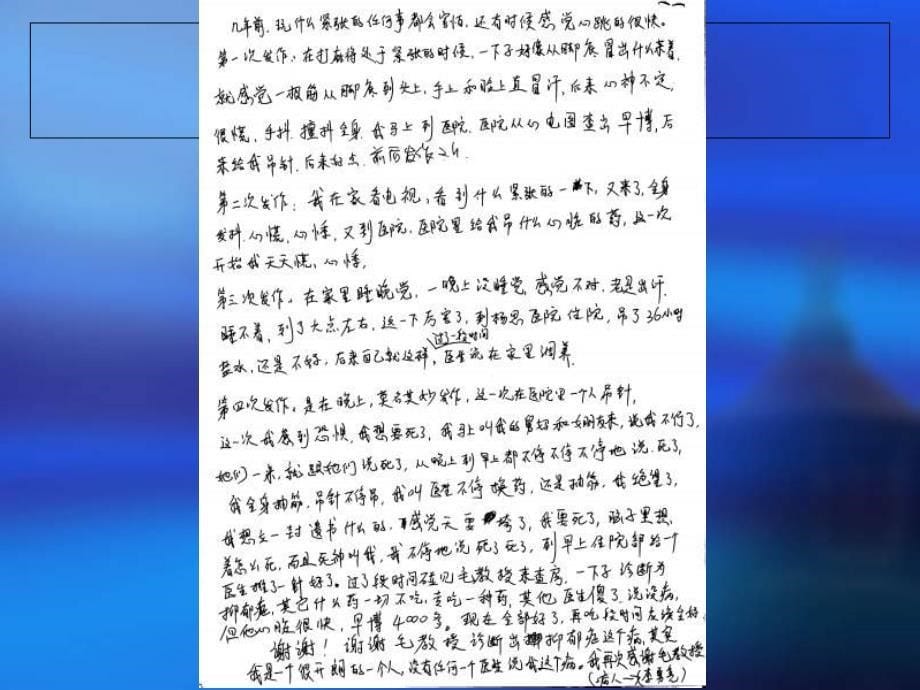 几年前,玩什么紧张的任何事都会害怕,还有时候感觉心跳的很快。
第一次发作:在打麻将处于紧张的时候,一下子好像从脚底冒出什么来着,
就感觉一根筋从脚底到头上,手上和脸上直冒汗,后来心神不定,
很慌,手抖,撞抖全身,我马上到医院,医院从心电图查出早博,后
来给我吊针,后来好点,前后发作2h.
第二次发作:我在家看电视,看到什么紧张的一下,又来了,全身
发抖,心慌,心悸,又到医院,医院里给我吊什么心脏的药,这一次
开始我天天慌,心悸,
第三次发作。在家里睡晚觉,一晚上没睡觉,感觉不对,老是出汗,
睡不着,到了六点左右,这一下厉害了,到杨思医院住院,吊了36小时
盐水,还是不好,后来自己就这样,过了一段时间医生说在家里调养.
第四次发作。是在晚上,莫名其妙发作,这一次在医院里一个人吊针,
这一次我感到恐惧,我想要死了,我马上叫我的舅妈和女朋友来,说我不行了,
她们一来,就跟她们说死了,从晚上到早上都不停不停不停地说,死了,
我全身抽筋,吊针不停吊,我叫医生不停换药,还是抽筋,我绝望了,
我想立一封遗书什么的,感觉天要垮了,我要死了,脑子里想
着怎么死,而且死神叫我,我不停地说死了死了,到早上住院部给个
医生推了一针好了。过了段时间碰见毛教授来查房,一下子诊断为
抑郁症,其它什么药一切不吃,专吃一种药,其他医生傻了,说没病,
但他心脏很快,早博4000多。现在全部好了,再吃段时间应该全好
谢谢!谢谢毛教授诊断出抑郁症这个病,其实
我是一个很开朗的一个人,没有任何一个医生说我这个病。我再次感谢毛教授